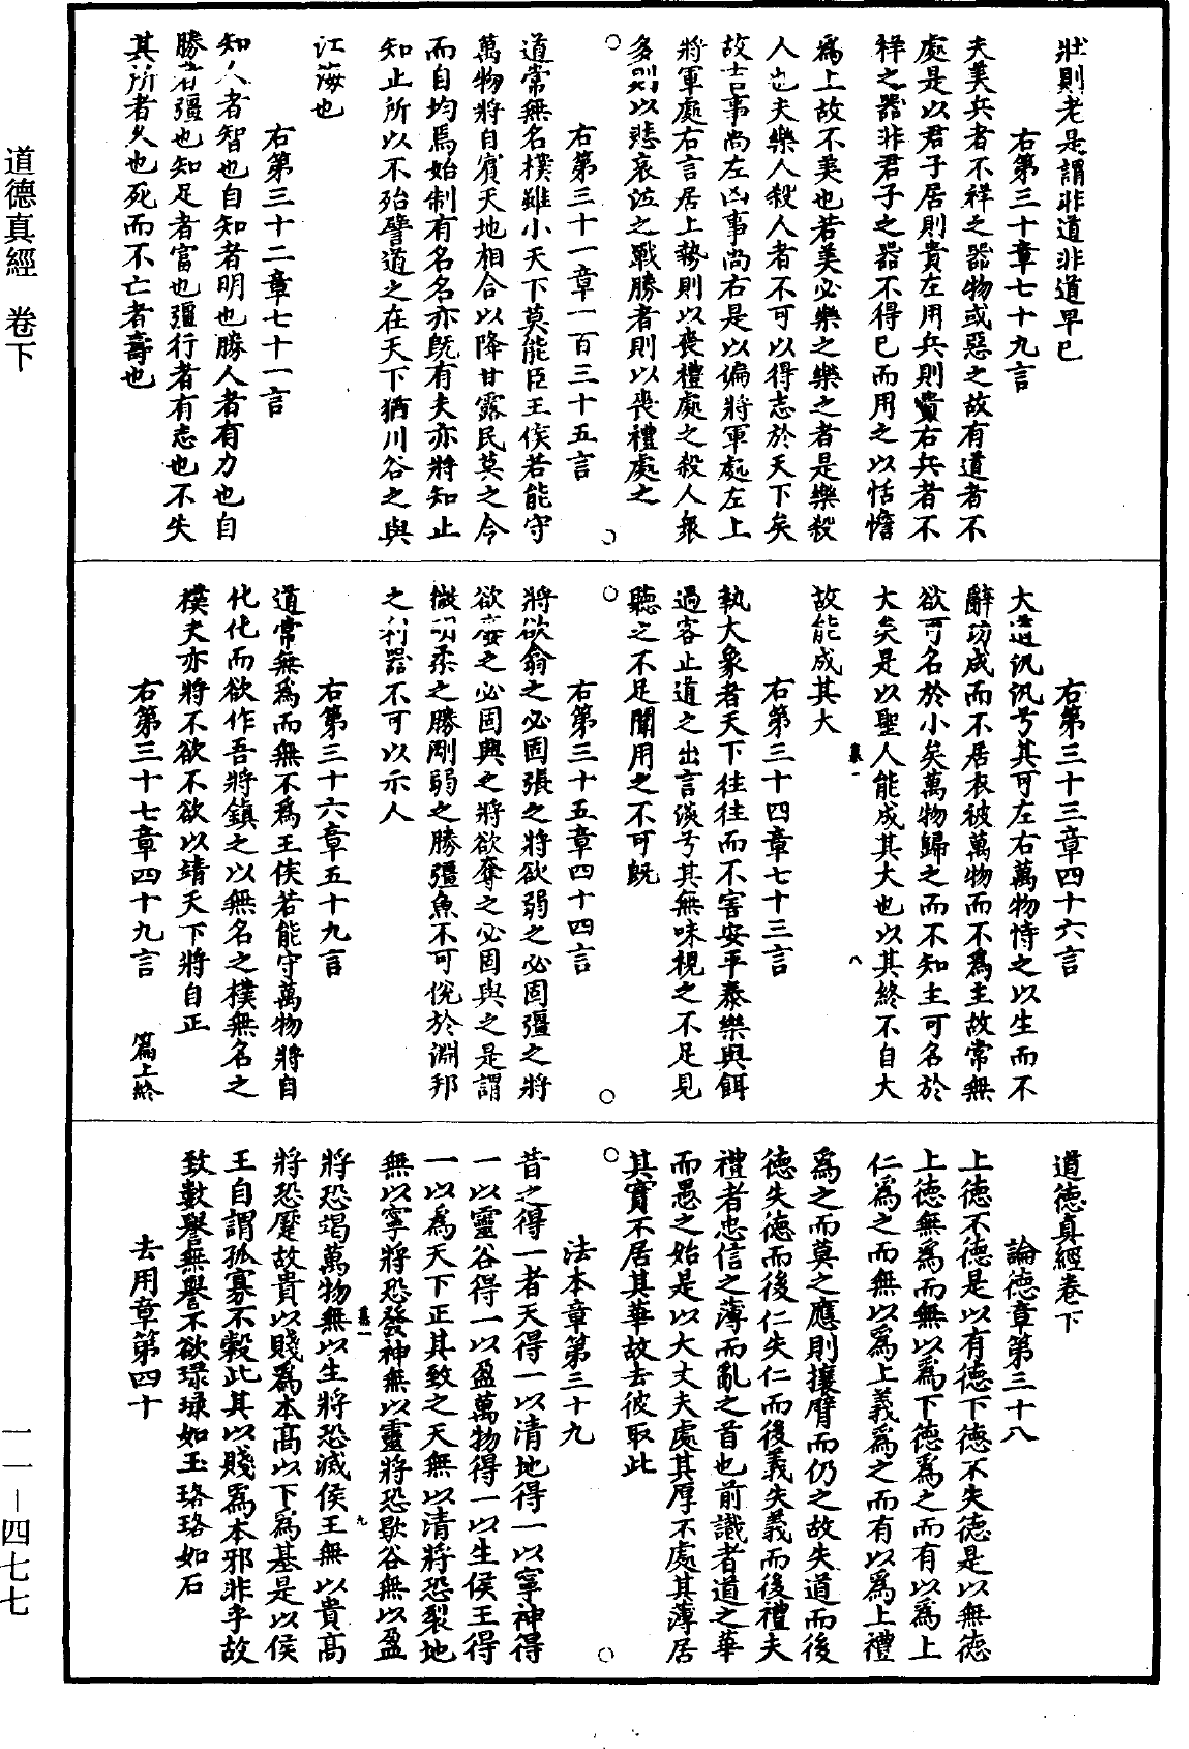 壯則老是謂非道非道早已
右第三十章七十九言
夫美兵者不祥之器物或惡之故有道者不
處是以君子居則貴左用兵則貴右兵者不
祥之器非君子之器不得已而用之以恬憺
爲上故不美也若美必樂之樂之者是樂殺
人也夫樂人殺人者不可以得志於天下矣
故吉事尚左凶事尚右是以偏將軍處左上
將軍處右言居上勢則以喪禮處之殺人衆
多則以悲哀泣之戰勝者則以喪禮處之
右第三十一章一百三十五言
道常無名樸雖小天下莫能臣王侯若能守
萬物將自賓天地相合以降甘露民莫之令
而自均焉始制有名名亦既有夫亦將知止
知止所以不殆譬道之在天下猶川谷之與
江海也
右第三十二章七十一言
知人者智也自知者明也勝人者有力也自
勝者彊也知足者富也彊行者有志也不失
其所者久也死而不亡者壽也
右第三十三章四十六言
大道汎汎兮其可左右萬物恃之以生而不
辭功成而不居衣被萬物而不爲主故常無
欲可名於小矣萬物歸之而不知主可名於
大矣是以聖人能成其大也以其終不自大
八
故能成其大
右第三十四章七十三言
執大象者天下往往而不害安平泰樂與餌
過客止道之出言淡兮其無味視之不足見
聽之不足聞用之不可既
右第三十五章四十四言
將欲翕之必固張之將欲弱之必固彊之將
欲廢之必固興之將欲奪之必固與之是謂
微明柔之勝剛弱之勝彊魚不可侻於淵邦
之利器不可以示人
右第三十六章五十九言
道常無爲而無不爲王侯若能守萬物將自
化化而欲作吾將鎮之以無名之樸無名之
樸夫亦將不欲不欲以靖天下將自正
右第三十七章四十九言 篇上終
道德真經卷下
論德章第三十八
上德不德是以有德下德不失德是以無德
上德無爲而無以爲下德爲之而有以爲上
仁爲之而無以爲上義爲之而有以爲上禮
爲之而莫之應則攘臂而仍之故失道而後
德失德而後仁失仁而後義失義而後禮夫
禮者忠信之薄而亂之首也前識者道之華
而愚之始是以大丈夫處其厚不處其薄居
其實不居其華故去彼取此
法本章第三十九
昔之得一者天得一以清地得一以寧神得
一以靈谷得一以盈萬物得一以生侯王得
一以爲天下正其致之天無以清將恐裂地
無以寧將恐發神無以靈將恐歇谷無以盈
九
將恐竭萬物無以生將恐滅侯王無以貴高
將恐蹷故貴以賤爲本高以下爲基是以侯
王自謂孤寡不穀此其以賤爲本邪非乎故
致數譽無譽不欲琭琭如玉珞珞如石
去用章第四十
道德真經　卷下
一一－四七七